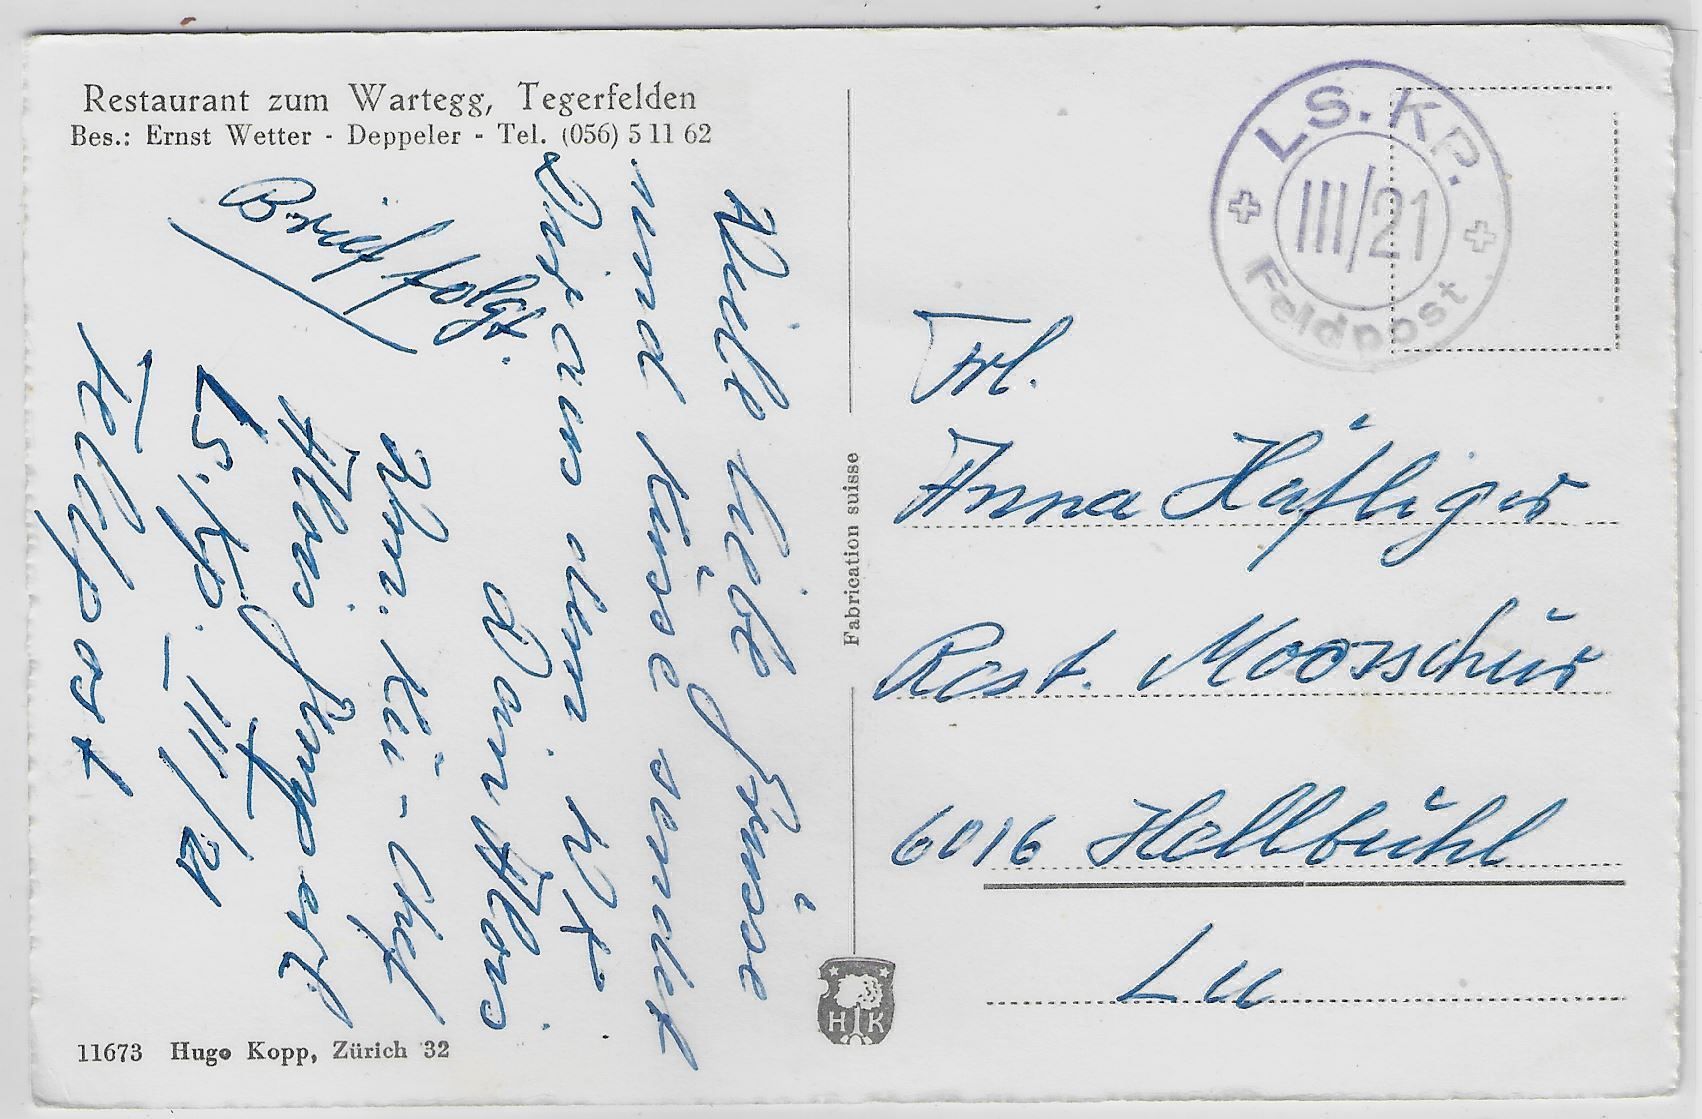 Restaurant zum Wartegg, Tegerfelden
Bes.: Ernst Wetter - Deppeler - Tel. (056) 5 11 62
Viele liebe Grüsse
und Küsse sendet
Dir aus dem W.K.
Dein Alois
Brief folgt.
Kü - Chef
Alois
LS. Kp. III/21
Feldpost
Fabrication suisse
H K
11673 Hugo Kopp, Zürich 32
LS. KP.
III/21
Feldpost
Frl.
Anna Häfliger
Rest. Moosschür
6016 Hellbühl
Lu